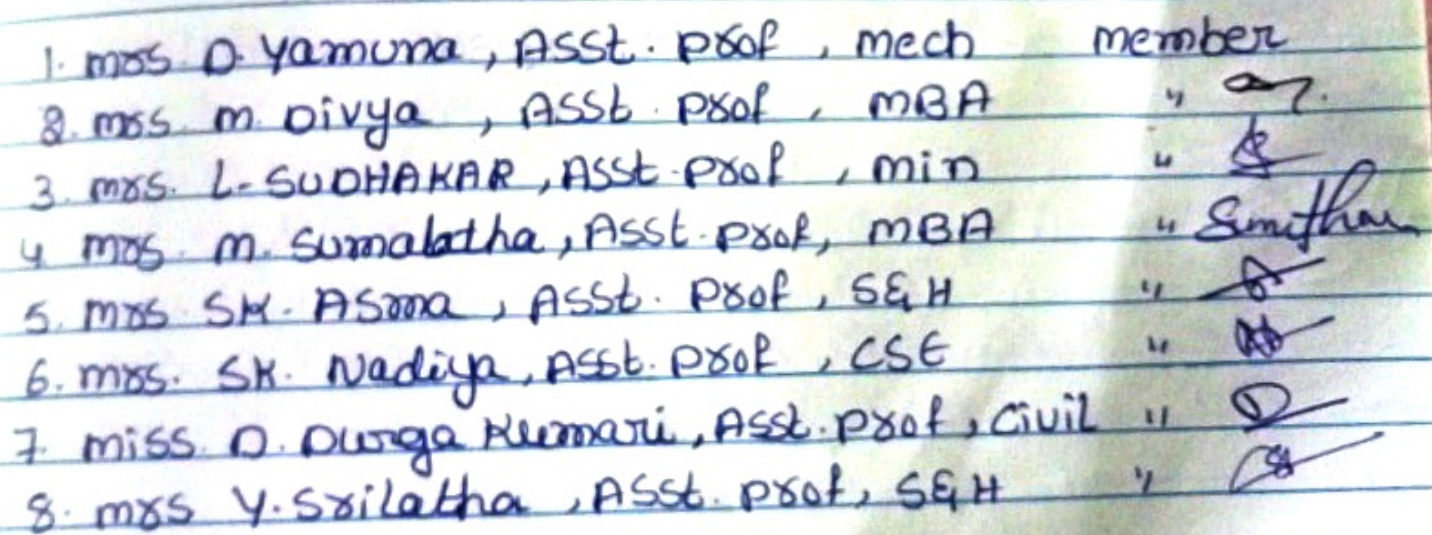 1. mrs. D. Yamuna, Asst. prof, mech member
2. mrs. M. Divya, Asst. prof, MBA "
3. mrs. L. SUDHAKAR, Asst. prof, min "
4 mrs. M. Sumalatha, Asst. prof, MBA "
5. mrs SK. Asma, Asst. prof, S&H "
6. mrs. SK. Nadiya, Asst. prof, CSE "
7. miss. D. Durga Kumari, Asst. prof, Civil "
8. mrs Y. Srilatha, Asst. prof, S&H "